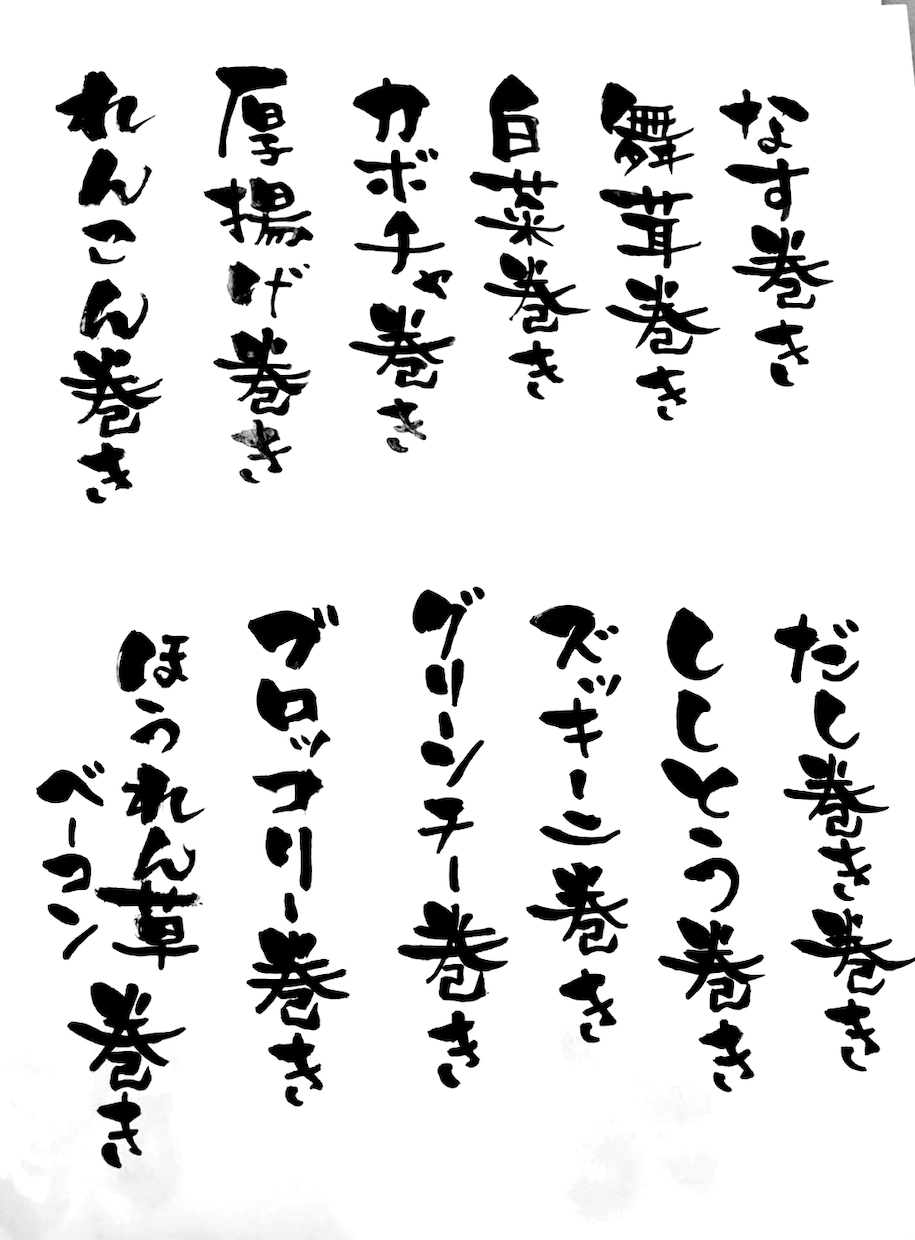 なす巻き
舞茸巻き
白菜巻き
カボチャ巻き
厚揚げ巻き
れんこん巻き
だし巻き巻き
ししとう巻き
ズッキーニ巻き
グリーンチー巻き
ブロッコリー巻き
ほうれん草
ベーコン
巻き